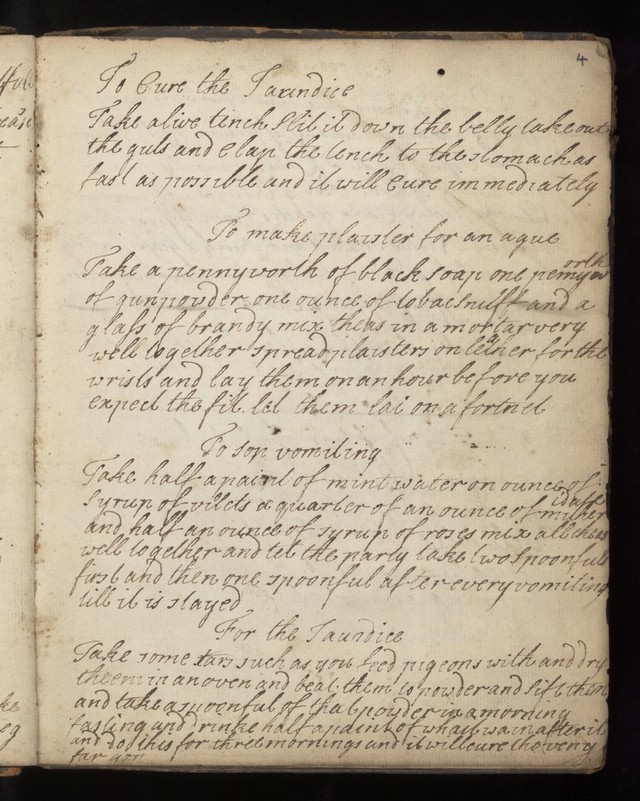 4
To Cure the Jaundice
Take alive tench slit it down the belly take out
the guts and Clap the tench to the stomach as
fast as possible and it will Cure immediately
To make plaister for an ague
Take a pennyworth of black soap one pennyworth
of gunpowder one ounce of tobac snuff and a
glass of brandy mix theas in a mortar very
well together spread plaisters on lether for the
wrists and lay them on an hour before you
expect the fit let them lai on a fortnet
To sop vomiting
Take half a paint of mint water on ounce of
syrup of vilets a quarter of an ounce of
and half an ounce of syrup of roses mix all theas
well together and let the party take two spoonfuls
first and then one spoonful after every vomiting
till it is stayed
For the Jaundice
Take some tars such as you feed pigeons with and dry
theem in an oven and beat them to powder and sift them
and take a spoonful of that powder in a morning
fasting and drinke half a paint of whait wain after it
and do this for three mornings and it will cure the
far gon